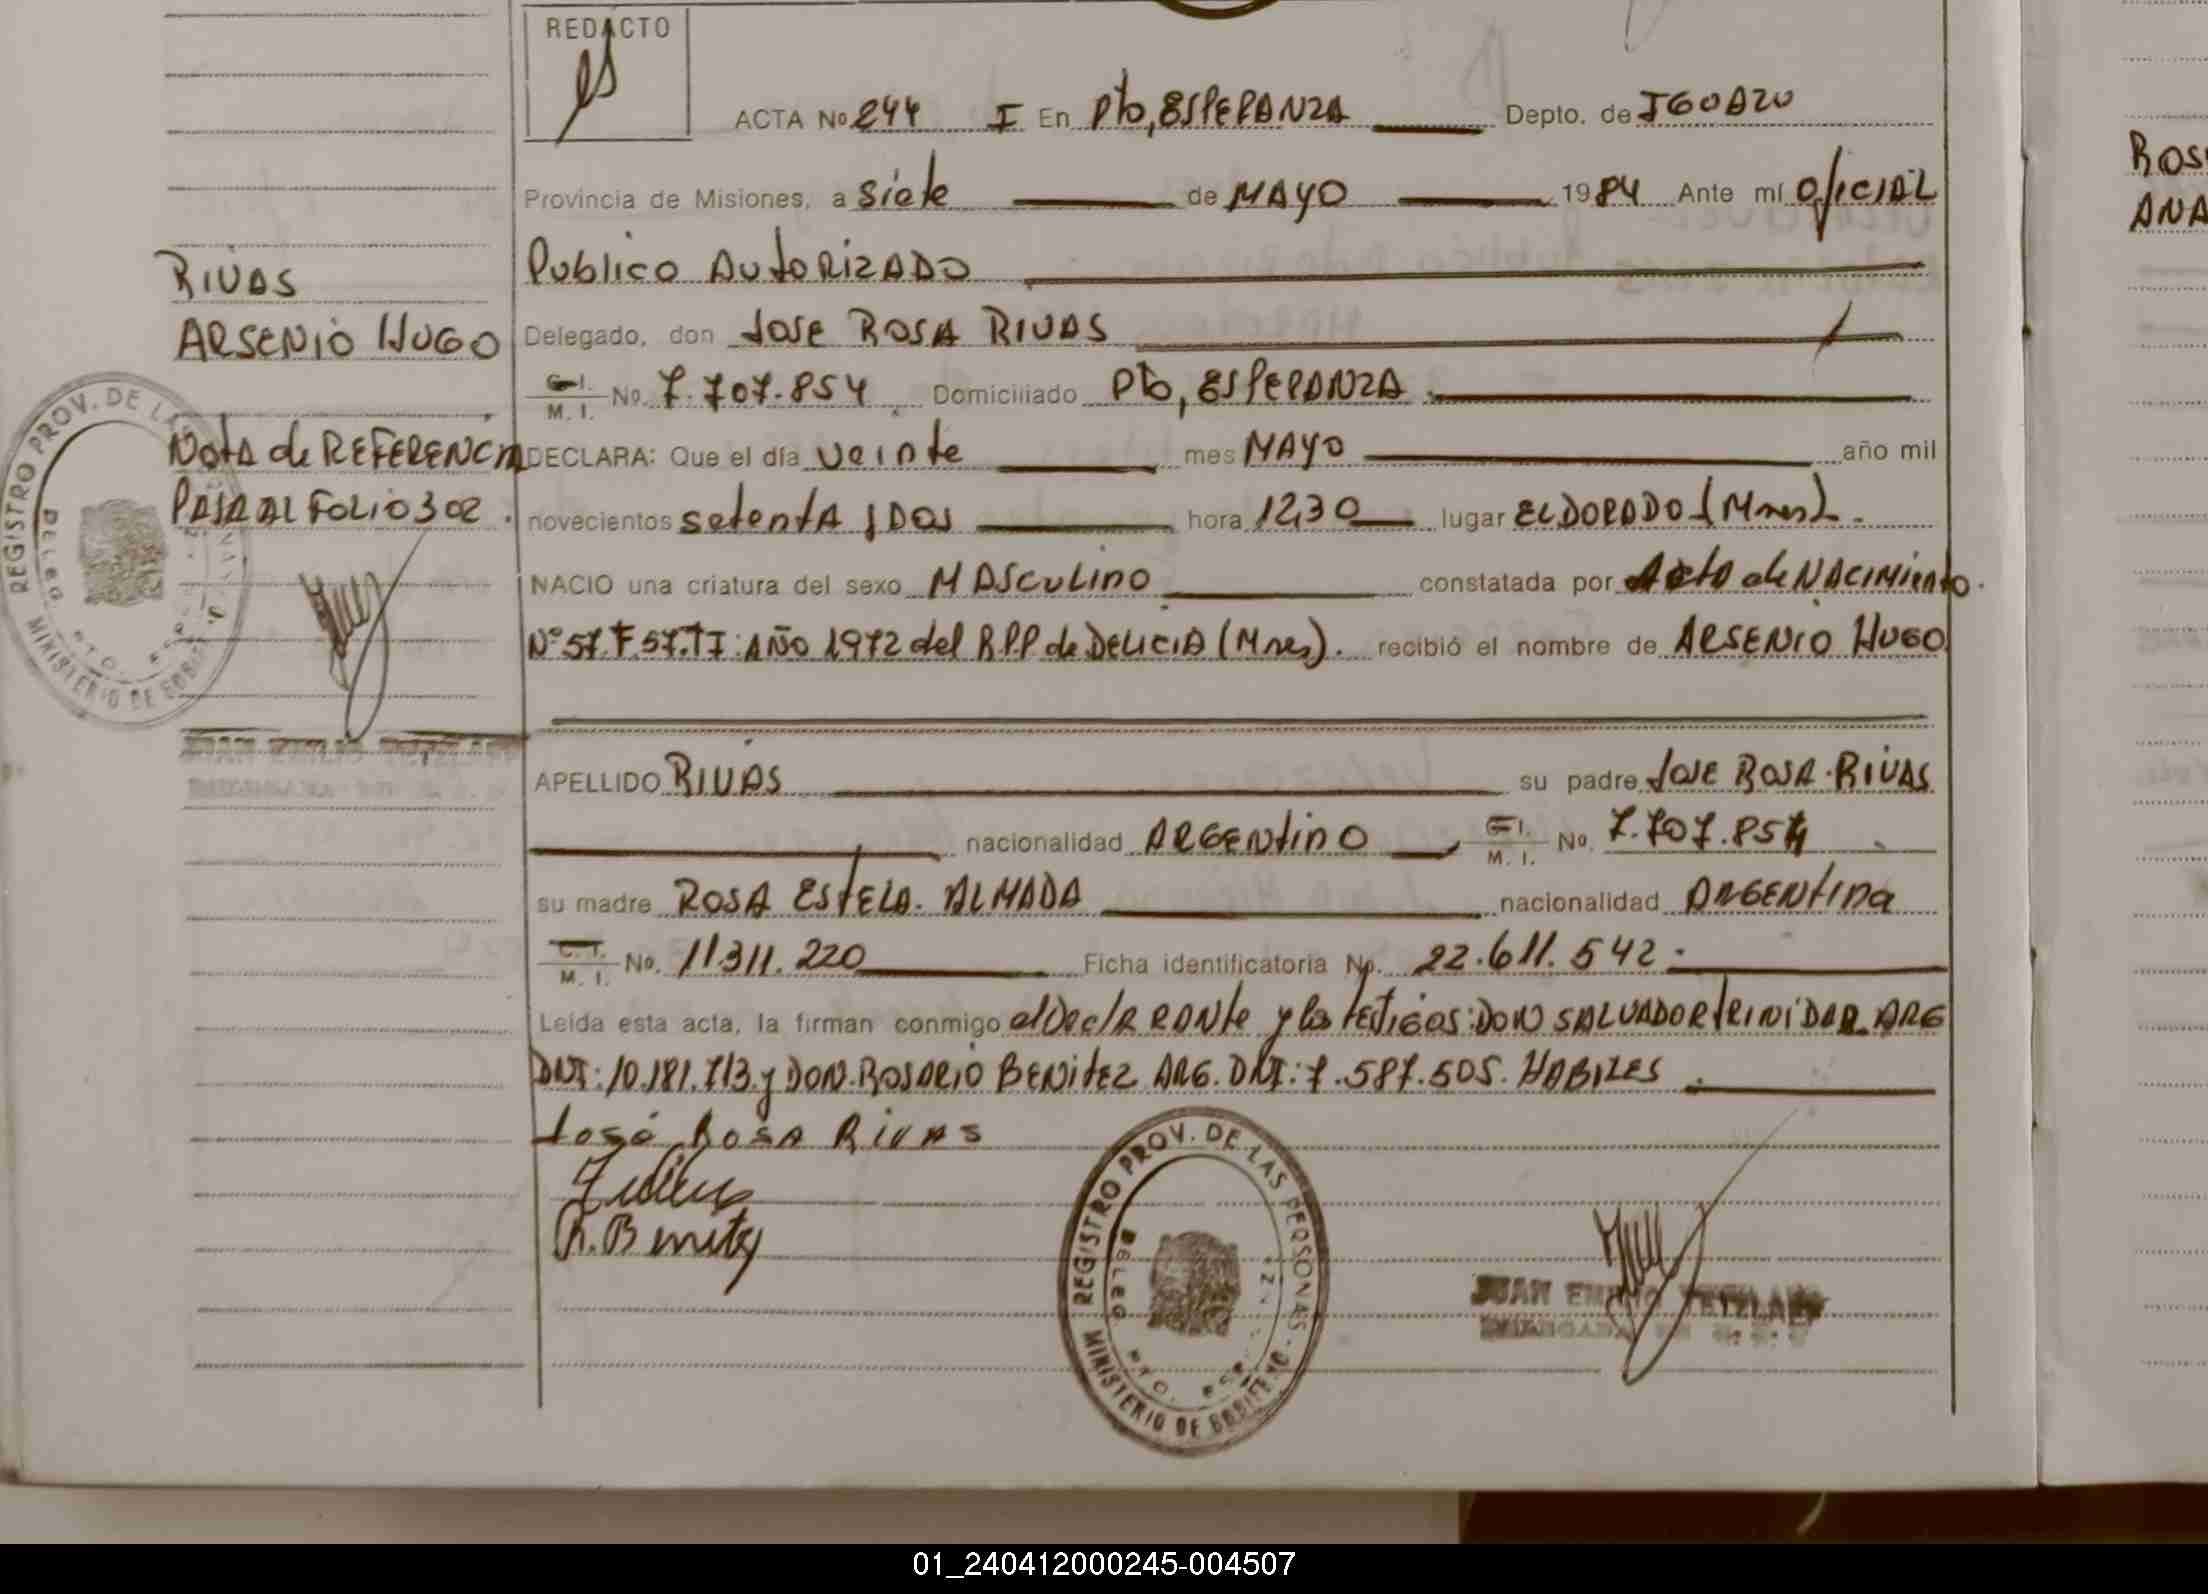 REDACTO
ACTA Nº 244 I En Pto, ESPERANZA Depto. de IGUAZU
Provincia de Misiones, a Siete de MAYO 1984 Ante mí OficIAL
Publico AutoRiZADO
Delegado, don JOSE ROSA RIVAS
C.I. M. I. No. 7.707.854 Domiciliado Pto, ESPERANZA
DECLARA: Que el día veinte mes MAYO año mil
novecientos setentA y DOS hora 12,30 lugar ELDORADO (Mnes).
NACIO una criatura del sexo MASculino constatada por Acta de NACIMiento.
Nº 57. F. 57. TI: AÑO 1972 del R.P.P de DELICIA (Mnes). recibió el nombre de ARSENIO HUGO
APELLIDO RIVAS su padre JOSE ROSA RIVAS
nacionalidad ARGENtinO C.I. M. I. No. 7.707.854
su madre ROSA EStELA. ALMADA nacionalidad ARGENtina
C. I. M. I. No. 11.311.220 Ficha identificatoria No. 22.611.542.
Leída esta acta, la firman conmigo el DeclARANte y los tEstigos: DON SALVADOR tRINIDAD ARG
DNI: 10.181.713. y DON. ROSARIO BENitEZ ARG. DNI: 7.587.505. HABILES
José Rosa RivAs
R. Benitez
RIVAS
ARSENIO HUGO
NotA de REFERENCIA
PASA AL FOLIO 302.
REGISTRO PROV. DE LAS
DELEG
PTO. ESP
MINISTERIO DE GOBIERNO
REGISTRO PROV. DE LAS PERSONAS
DELEG
PTO. ESP
MINISTERIO DE GOBIERNO
JUAN EMILIO
JUAN EMILIO
ROS
ANA
01_240412000245-004507